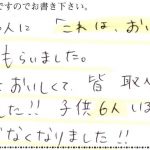 ですのでお書き下さい。
人に「これは、おい
もらいました。
おいしくて、皆 取
した!! 子供6人い
なくなりました!!